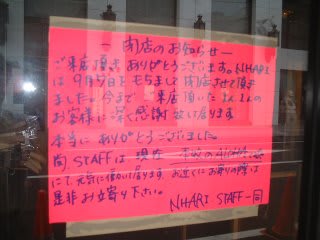 －閉店のお知らせ－
ご来店頂きありがとうございます。NHARI
は9月5日をもちまして閉店させて頂き
ました。今まで ご来店頂いた
お客様に深く感謝致し居ります
本当にありがとうございました。
尚STAFFは 現在
にて元気に働いて居ります。お近くにお寄りの際は
是非お立寄り下さい。
NHARI STAFF一同